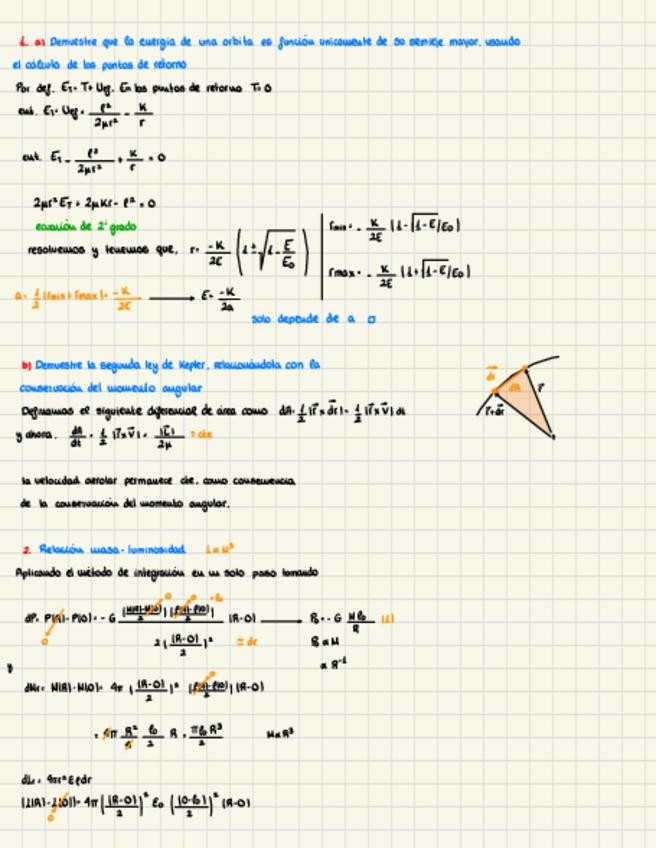 1. a) Demuestre que la energia de una orbita es función unicamente de su semieje mayor, usando
el cálculo de los puntos de retorno
Por def. E_T = T + U_ef. En los puntos de retorno T=0
ent. E_T = U_ef = ℓ²/2μr² - K/r
ent. E_T - ℓ²/2μr² + K/r = 0
2μr²E_T + 2μKr - ℓ² = 0
ecuación de 2° grado
resolvemos y tenemos que, r = -K/2E (1 ± √(1 - E/E₀))
r_min = -K/2E (1-√(1-E/E₀))
r_max = -K/2E (1+√(1-E/E₀))
a = 1/2 (r_min + r_max) = -K/2E → E = -K/2a
solo depende de a □
b) Demuestre la segunda ley de Kepler, relacionándola con la
conservación del momento angular
Definamos el siguiente diferencial de área como dA = 1/2 |r⃗ x dr⃗| = 1/2 |r⃗ x v⃗| dt
y ahora, dA/dt = 1/2 |r⃗ x v⃗| = |L⃗|/2μ = cte
dr⃗
dA
r⃗
r⃗+dr⃗
la velocidad aerolar permanece cte, como consecuencia
de la conservación del momento angular.
2. Relación masa-luminosidad L ∝ M³
Aplicando el método de integración en un solo paso tomando
dP = P(R) - P(0) = -G (M(R)-M(0))/2 (ρ(R)-ρ(0))/2 (R-0) → P₀ = -G Mρ₀/R (1)
2((R-0)/2)² = dr
P₀ ∝ M
∝ R⁻¹
y
dMr = M(R) - M(0) = 4π ((R-0)/2)² (ρ(R)-ρ(0))/2 (R-0)
= 4π R²/4 ρ₀/2 R = πρ₀R³/2 M ∝ R³
dLr = 4πr²ερdr
(L(R)-L(0)) = 4π ((R-0)/2)² ε₀ ((0-ρ₀)/2)² (R-0)